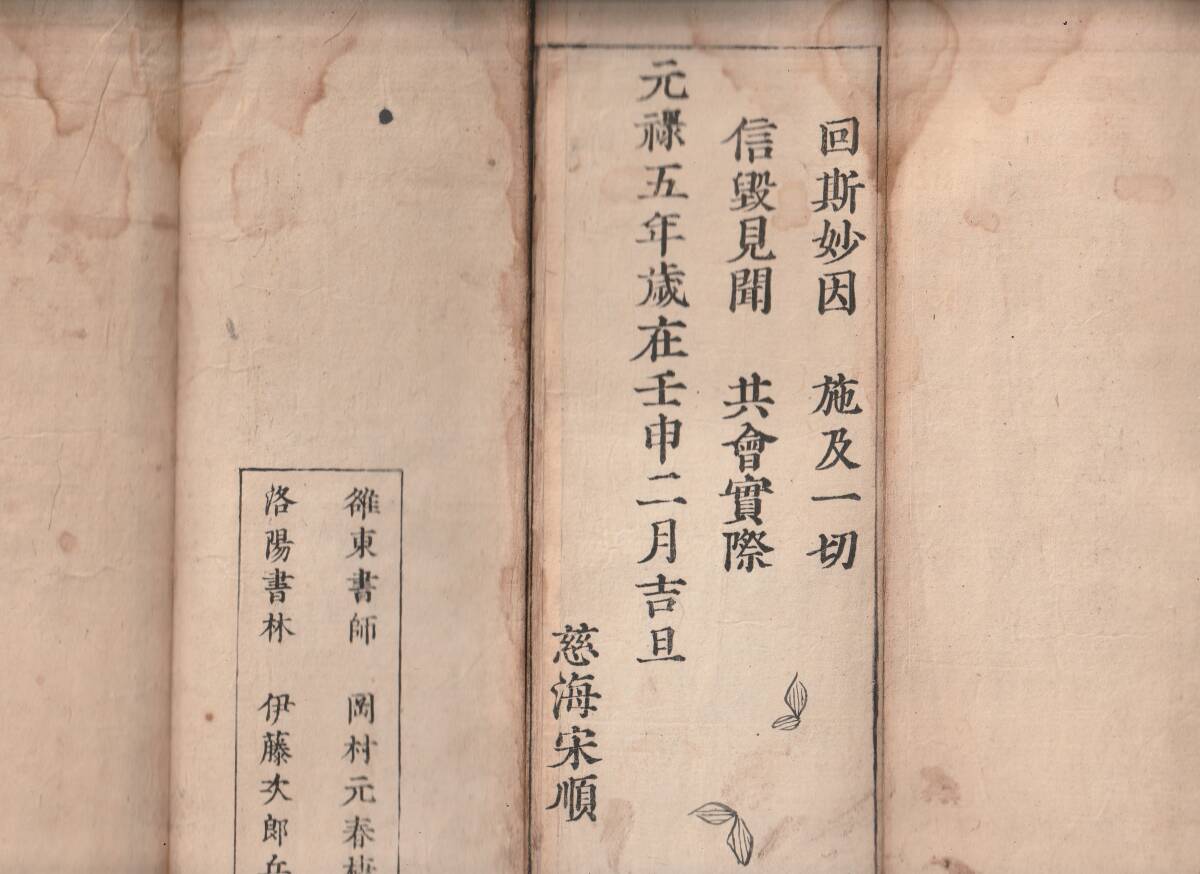 回斯妙因　施及一切
信毀見聞　共會實際
元祿五年歲在壬申二月吉旦
慈海宋順
雒東書師　岡村元春
洛陽書林　伊藤次郎兵